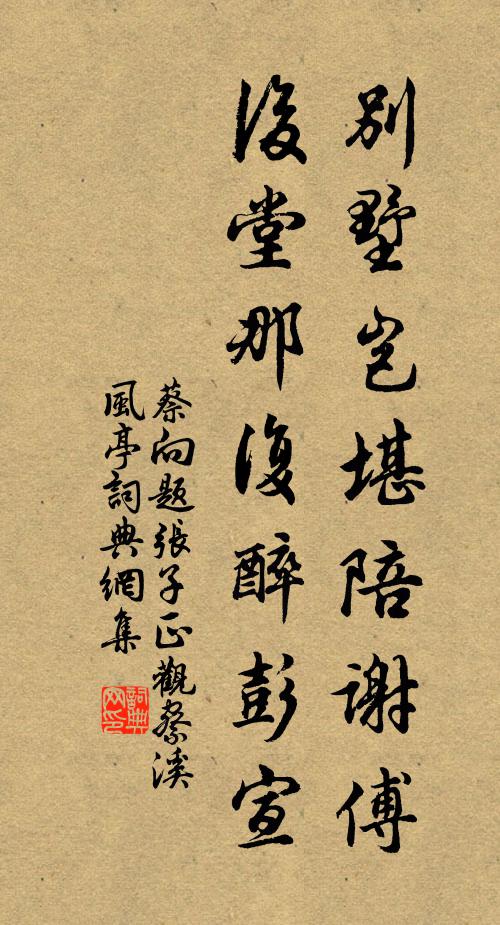 別墅岂堪陪謝傅
後堂那復醉彭宣
蔡向题張子正觀察溪
風亭詞典網集
詞典
网印